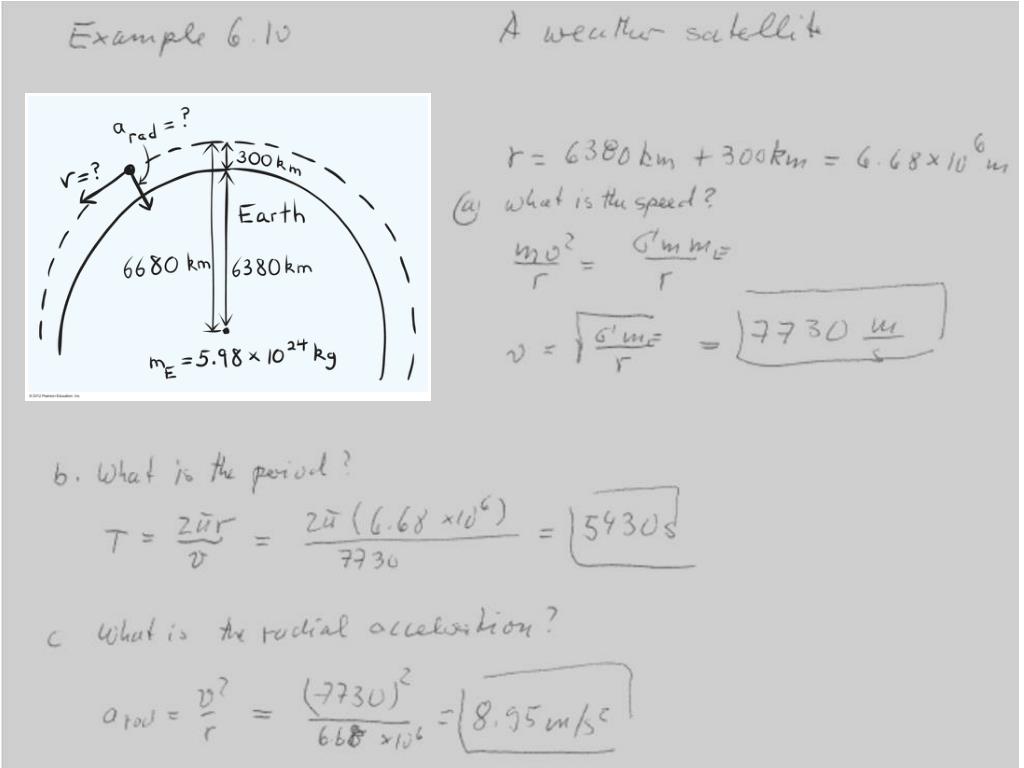 Example 6.10
A weather satellite
a_rad = ?
v = ?
300 km
Earth
6680 km
6380 km
m_E = 5.98 × 10^24 kg
©2012 Pearson Education, Inc.
r = 6380 km + 300 km = 6.68 × 10^6 m
(a) what is the speed?
mv^2/r = G m m_E/r
v = √(G m_E/r) = 7730 m/s
b. What is the period?
T = 2πr/v = 2π(6.68 × 10^6)/7730 = 5430 s
c What is the radial acceleration?
a_rad = v^2/r = (7730)^2/6.68 × 10^6 = 8.95 m/s^2